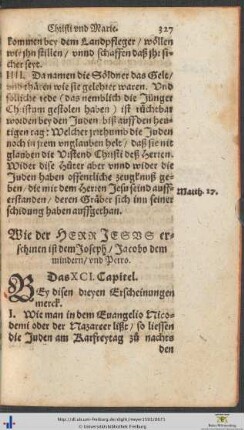 Christi vnd Marie. 327
kommen bey dem Landpfleger / wöllen
wir jhn stillen / vnnd schaffen daß jhr si-
cher seyt.
IIII. Da namen die Söldner das Gelt /
vnd thäten wie sie gelehret waren. Vnd
soliche rede (das nemblich die Jünger
Christum gestolen haben) ist rüchtbar
worden bey den Juden biß auff den heu-
tigen tag: Welcher jrrthumb die Juden
noch in jrem vnglauben helt / daß sie nit
glauben die Vrstend Christi deß Herren.
Wider dise Hüter aber vnnd wider die
Juden haben offentliche zeugknuß ge-
ben / die mit dem Herren Jesu seind auff-
erstanden / deren Gräber sich inn seiner
scheidung haben auffgethan.
Matth. 27.
Wie der HERR JESVS er-
schinen ist dem Joseph / Jacobo dem
mindern / vnd Petro.
Das XCI. Capitel.
BEy disen dreyen Erscheinungen
merck.
I. Wie man in dem Euangelio Nico-
demi oder der Nazareer lißt / so liessen
die Juden am Karfreytag zů nachts
den
© Universitätsbibliothek Freiburg